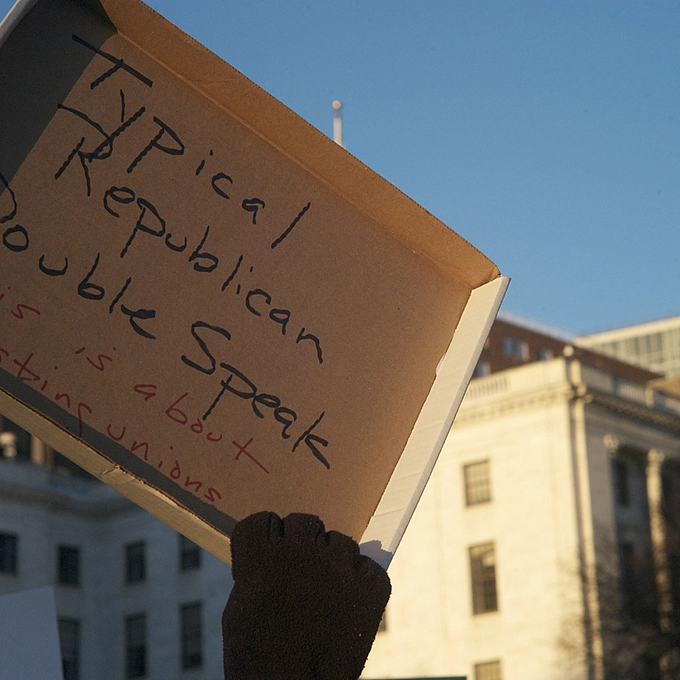 Typical
Republican
Double Speak
is is about
sting unions